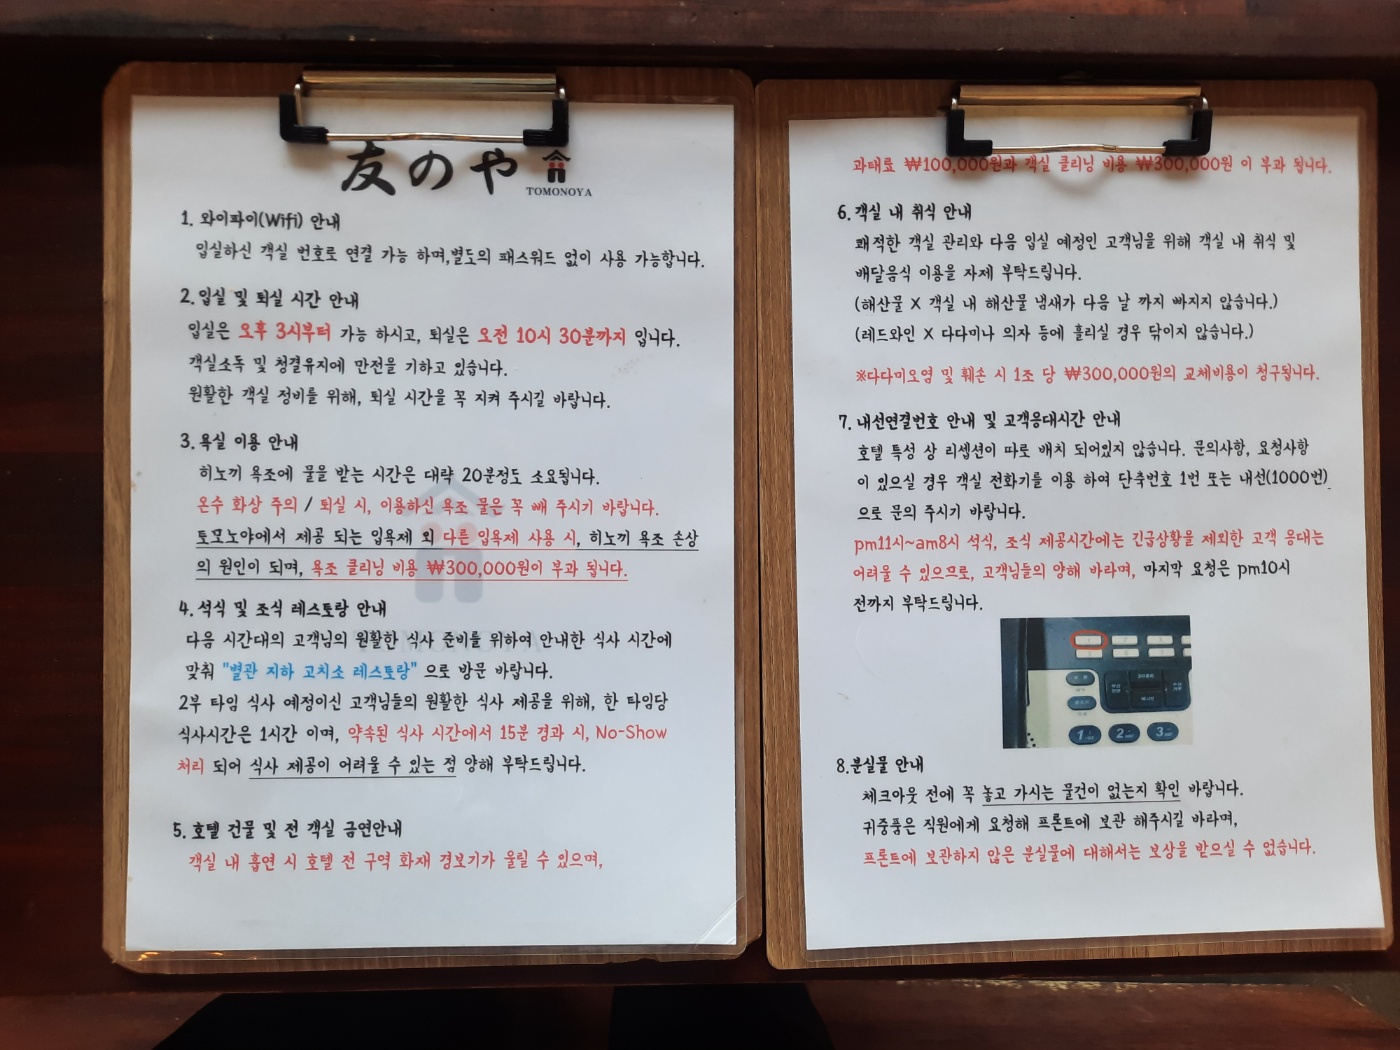 友のや
TOMONOYA
1. 와이파이(Wifi) 안내
입실하신 객실 번호로 연결 가능 하며,별도의 패스워드 없이 사용 가능합니다.
2. 입실 및 퇴실 시간 안내
입실은 오후 3시부터 가능 하시고, 퇴실은 오전 10시 30분까지 입니다.
객실소독 및 청결유지에 만전을 기하고 있습니다.
원활한 객실 정비를 위해, 퇴실 시간을 꼭 지켜 주시길 바랍니다.
3. 욕실 이용 안내
히노끼 욕조에 물을 받는 시간은 대략 20분정도 소요됩니다.
온수 화상 주의 / 퇴실 시, 이용하신 욕조 물은 꼭 빼 주시기 바랍니다.
토모노야에서 제공 되는 입욕제 외 다른 입욕제 사용 시, 히노끼 욕조 손상
의 원인이 되며, 욕조 클리닝 비용 ₩300,000원이 부과 됩니다.
4. 석식 및 조식 레스토랑 안내
다음 시간대의 고객님의 원활한 식사 준비를 위하여 안내한 식사 시간에
맞춰 "별관 지하 고치소 레스토랑" 으로 방문 바랍니다.
2부 타임 식사 예정이신 고객님들의 원활한 식사 제공을 위해, 한 타임당
식사시간은 1시간 이며, 약속된 식사 시간에서 15분 경과 시, No-Show
처리 되어 식사 제공이 어려울 수 있는 점 양해 부탁드립니다.
5. 호텔 건물 및 전 객실 금연안내
객실 내 흡연 시 호텔 전 구역 화재 경보기가 울릴 수 있으며,
과태료 ₩100,000원과 객실 클리닝 비용 ₩300,000원 이 부과 됩니다.
6. 객실 내 취식 안내
쾌적한 객실 관리와 다음 입실 예정인 고객님을 위해 객실 내 취식 및
배달음식 이용을 자제 부탁드립니다.
(해산물 X 객실 내 해산물 냄새가 다음 날 까지 빠지지 않습니다.)
(레드와인 X 다다미나 의자 등에 흘리실 경우 닦이지 않습니다.)
※다다미오염 및 훼손 시 1조 당 ₩300,000원의 교체비용이 청구됩니다.
7. 내선연결번호 안내 및 고객응대시간 안내
호텔 특성 상 리셉션이 따로 배치 되어있지 않습니다. 문의사항, 요청사항
이 있으실 경우 객실 전화기를 이용 하여 단축번호 1번 또는 내선(1000번)
으로 문의 주시기 바랍니다.
pm11시~am8시 석식, 조식 제공시간에는 긴급상황을 제외한 고객 응대는
어려울 수 있으므로, 고객님들의 양해 바라며, 마지막 요청은 pm10시
전까지 부탁드립니다.
1 2 3
8.분실물 안내
체크아웃 전에 꼭 놓고 가시는 물건이 없는지 확인 바랍니다.
귀중품은 직원에게 요청해 프론트에 보관 해주시길 바라며,
프론트에 보관하지 않은 분실물에 대해서는 보상을 받으실 수 없습니다.